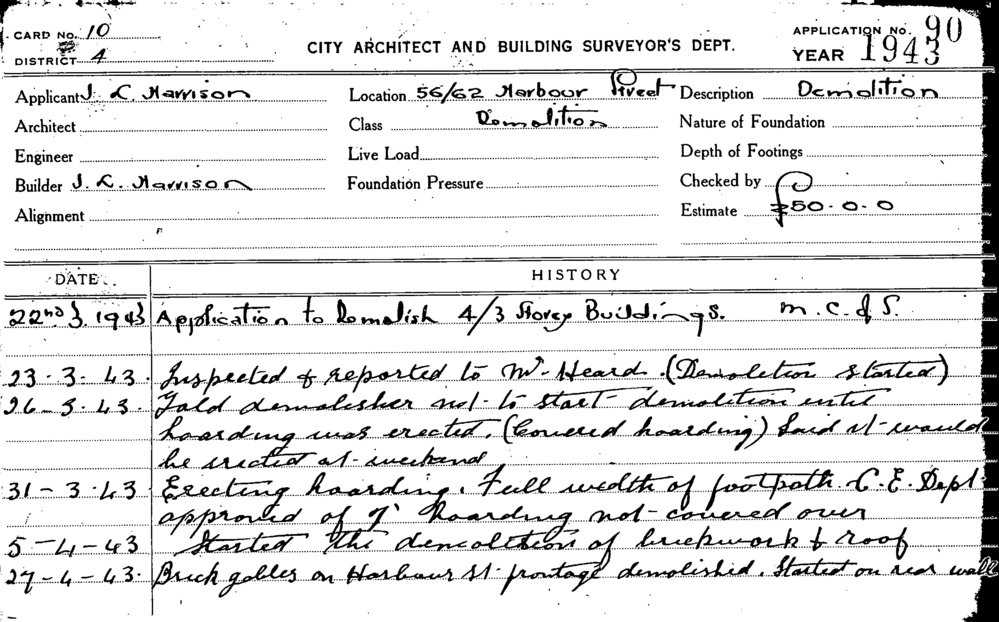 CARD No. 10
DISTRICT 4
CITY ARCHITECT AND BUILDING SURVEYOR'S DEPT.
APPLICATION No. 90
YEAR 1943
Applicant J. L. Harrison
Location 56/62 Harbour Street
Description Demolition
Architect
Class Demolition
Nature of Foundation
Engineer
Live Load
Depth of Footings
Builder J. L. Harrison
Foundation Pressure
Checked by
Alignment
Estimate £50-0-0
DATE
HISTORY
22nd 3. 1943 Application to Demolish 4/3 Storey Buildings. M.C. & S.
23-3-43. Inspected & reported to Mr. Heard. (Demolition started)
26-3-43. Told demolisher not to start demolition until
hoarding was erected. (Covered hoarding) Said it would
be erected at weekend
31-3-43 Erecting hoarding. Full width of footpath. C.E. Dept.
approved of hoarding not covered over
5-4-43 Started the demolition of brickwork & roof
27-4-43. Brick gables on Harbour St. frontage demolished. Started on rear wall